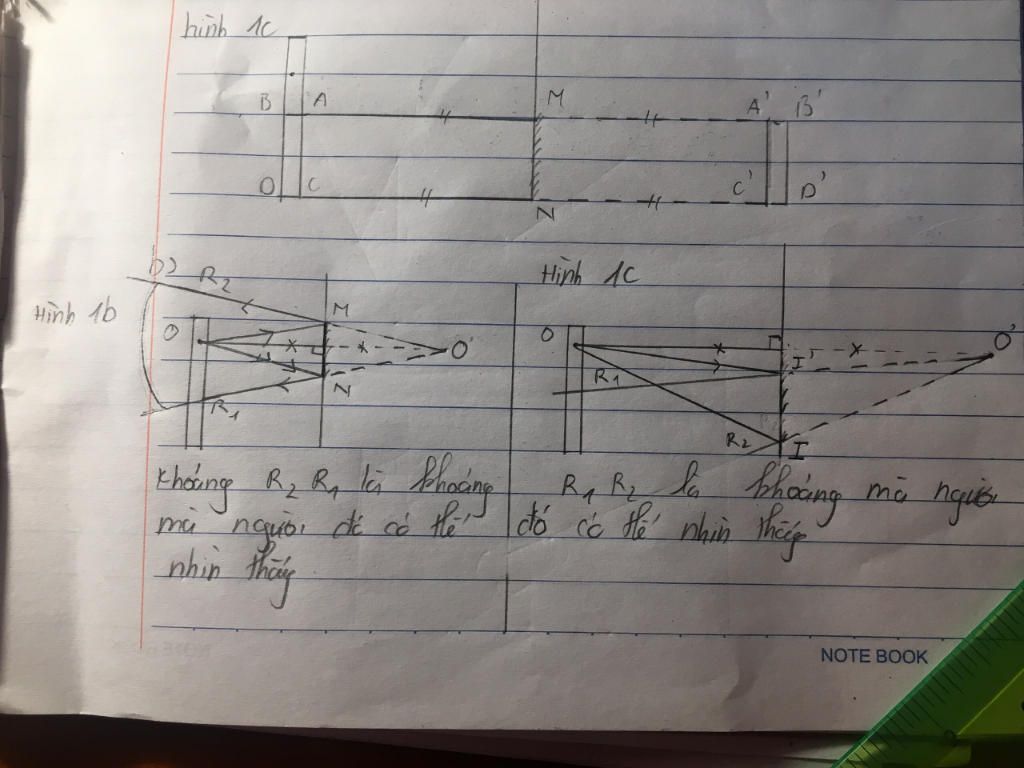 hình 1c
B A M A' B'
D C N C' D'
Hình 1b
R2 M
O O'
N
R1
Khoảng R2 R1 là khoảng
mà người đó có thể
nhìn thấy
Hình 1c
O O'
I'
R1
R2 I
R1 R2 là khoảng mà người
đó có thể nhìn thấy
NOTE BOOK